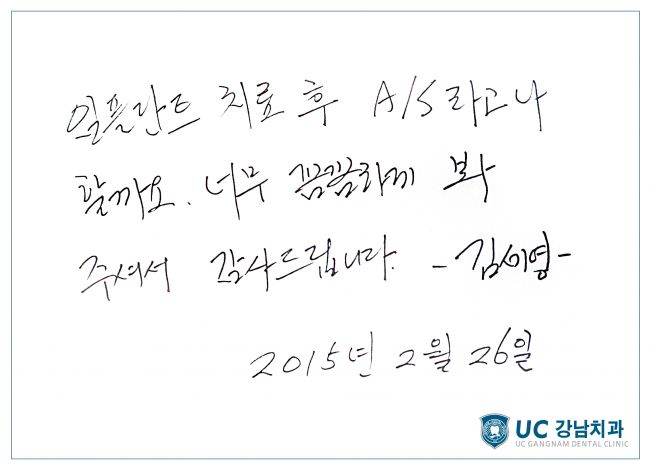 임플란트 치료 후 A/S라고나
할까요. 너무 꼼꼼하게 봐
주셔서 감사드립니다. -김세영-
2015년 2월 26일
UC 강남치과
UC GANGNAM DENTAL CLINIC